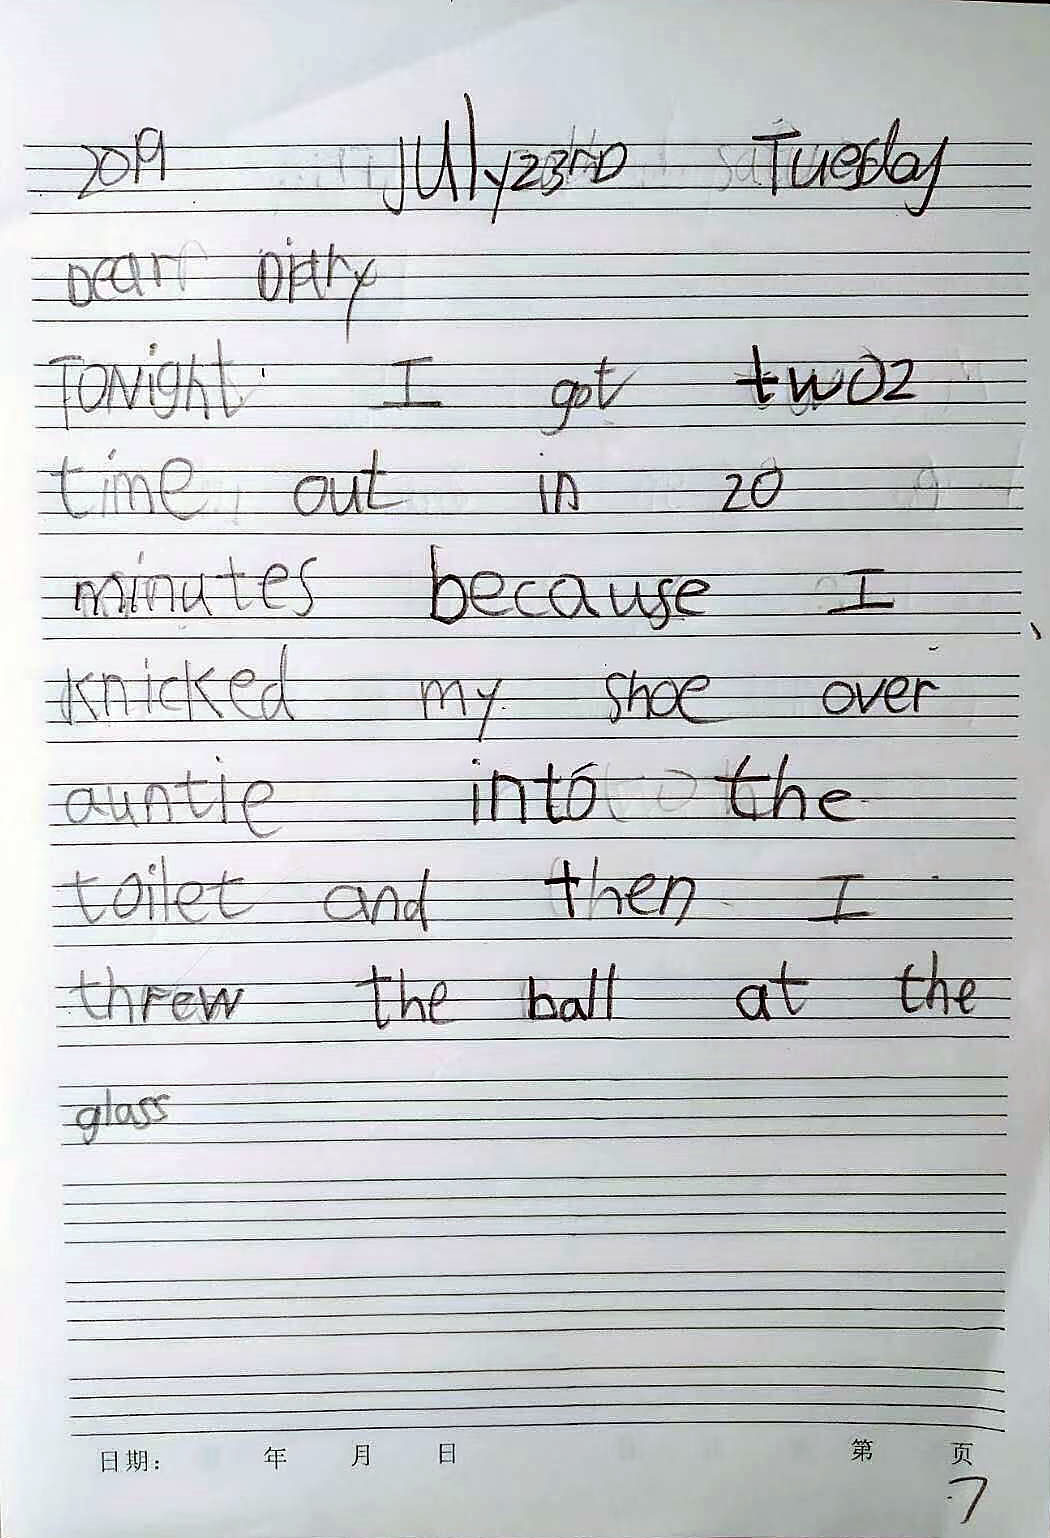 2019 July 23RD Tuesday
Dear Diary
Tonight I got two2
time out in 20
minutes because I
knicked my shoe over
auntie into the
toilet and then I
threw the ball at the
glass
日期： 年 月 日 第 页
7